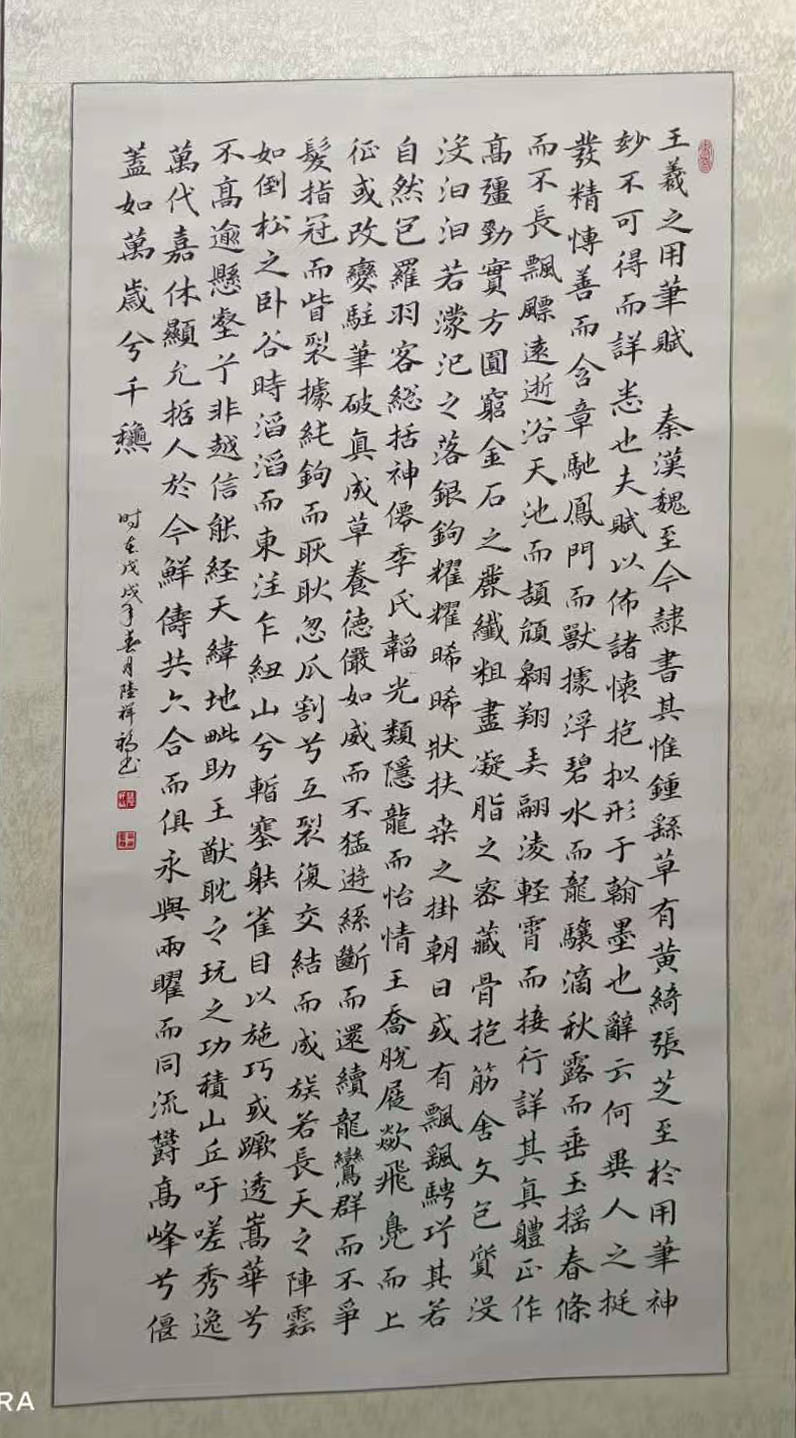 王羲之用筆賦 秦漢魏至今隸書其惟鍾繇草有黃綺張芝至於用筆神
妙不可得而詳悉也夫賦以佈諸懷抱拟形于翰墨也辭云何異人之挺
發精愽善而含章馳鳳門而獸據浮碧水而龍驤滴秋露而垂玉摇春條
而不長飄飄遠逝浴天池而頡頏翱翔弄翮淩軽霄而接行詳其真軆正作
髙彊勁實方圓窮金石之麗纖粗盡凝脂之密藏骨抱筋含文包質没
没汩汩若濛汜之落銀鉤耀耀晞晞狀扶桒之掛朝日或有飄飖騁巧其若
自然包羅羽客総括神僊季氏韜光類隱龍而怡情王喬脫屣歘飛鳧而上
征或改變駐筆破真成草養徳儼如威而不猛遊絲斷而還續龍鸞群而不爭
髮指冠而眥裂據純鉤而耿耿忽瓜割兮互裂復交結而成族若長天之陣雲
如倒松之卧谷時滔滔而東注乍紐山兮暫塞躲雀目以施巧或蹶透嵩華兮
不髙逾懸壑兮非越信能経天緯地毗助王猷耽之玩之功積山丘吁嗟秀逸
萬代嘉休顯允哲人於今鮮儔共六合而俱永與兩曜而同流欝髙峰兮偃
蓋如萬歳兮千龝
时在戊戌年春月陸祥福书